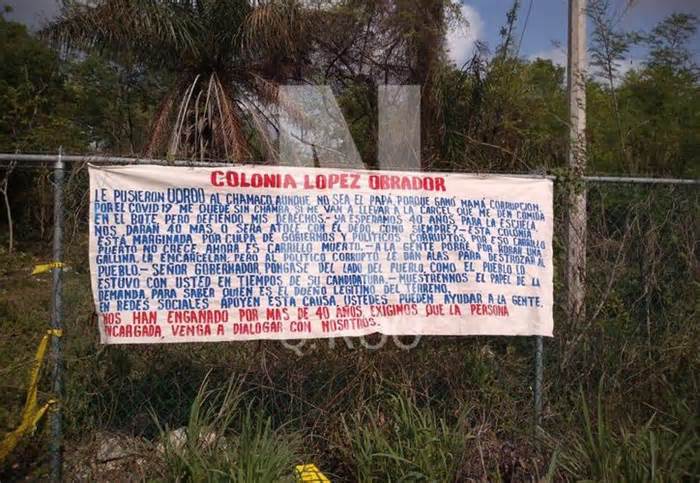 COLONIA LOPEZ OBRADOR
LE PUSIERON UDROU AL CHAMACO, AUNQUE NO SEA EL PAPÁ, PORQUE GANÓ MAMÁ CORRUPCIÓN.
POR EL COVID 19 ME QUEDE SIN CHAMBA SI ME VAN A LLEVAR A LA CARCEL QUE ME DEN COMIDA
EN EL BOTE PERO DEFIENDO MIS DERECHOS.- YA ESPERAMOS 40 AÑOS PARA LA ESCUELA
NOS DARAN 40 MAS. O SERA ATOLE CON EL DEDO, COMO SIEMPRE?- ESTA COLONIA
ESTÁ MARGINADA, POR CULPA DE GOBIERNOS Y POLITICOS CORRUPTOS, POR ESO CARRILLO
PUERTO NO CRECE. AHORA ES CARRILLO MUERTO.- A LA GENTE POBRE, POR ROBAR UNA
GALLINA, LA ENCARCELAN, PERO AL POLITICO CORRUPTO LE DAN ALAS PARA DESTROZAR AL
PUEBLO.- SEÑOR GOBERNADOR, PONGASE DEL LADO DEL PUEBLO, COMO EL PUEBLO LO
ESTUVO CON USTED EN TIEMPOS DE SU CANDIDATURA.- MUESTRENNOS EL PAPEL DE LA
DEMANDA, PARA SABER QUIEN ES EL DUEÑO LEGITIMO DEL TERRENO.
EN REDES SOCIALES APOYEN ESTA CAUSA, USTEDES PUEDEN AYUDAR A LA GENTE.
NOS HAN ENGAÑADO POR MAS DE 40 AÑOS, EXIGIMOS QUE LA PERSONA
ENCARGADA, VENGA A DIALOGAR CON NOSOTROS.